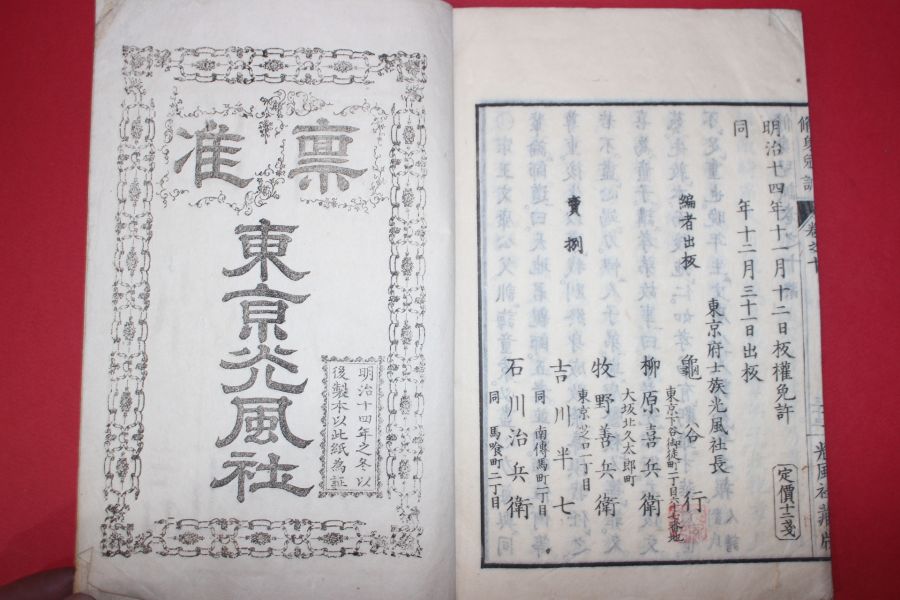 明治十四年十一月十二日板權免許
同　年十二月三十一日出板
定價十二戔
編者出板
東京府士族光風社長
龜谷行
東京下谷御徒町二丁目六十七番地
賣捌
柳原喜兵衛
大坂北久太郎町
牧野善兵衛
東京芝口一丁目
吉川半七
同　南傳馬町一丁目
石川治兵衛
同　馬喰町二丁目
卷之十
光風社藏版
稟准
東京光風社
明治十四年之冬以
後製本以此紙為証